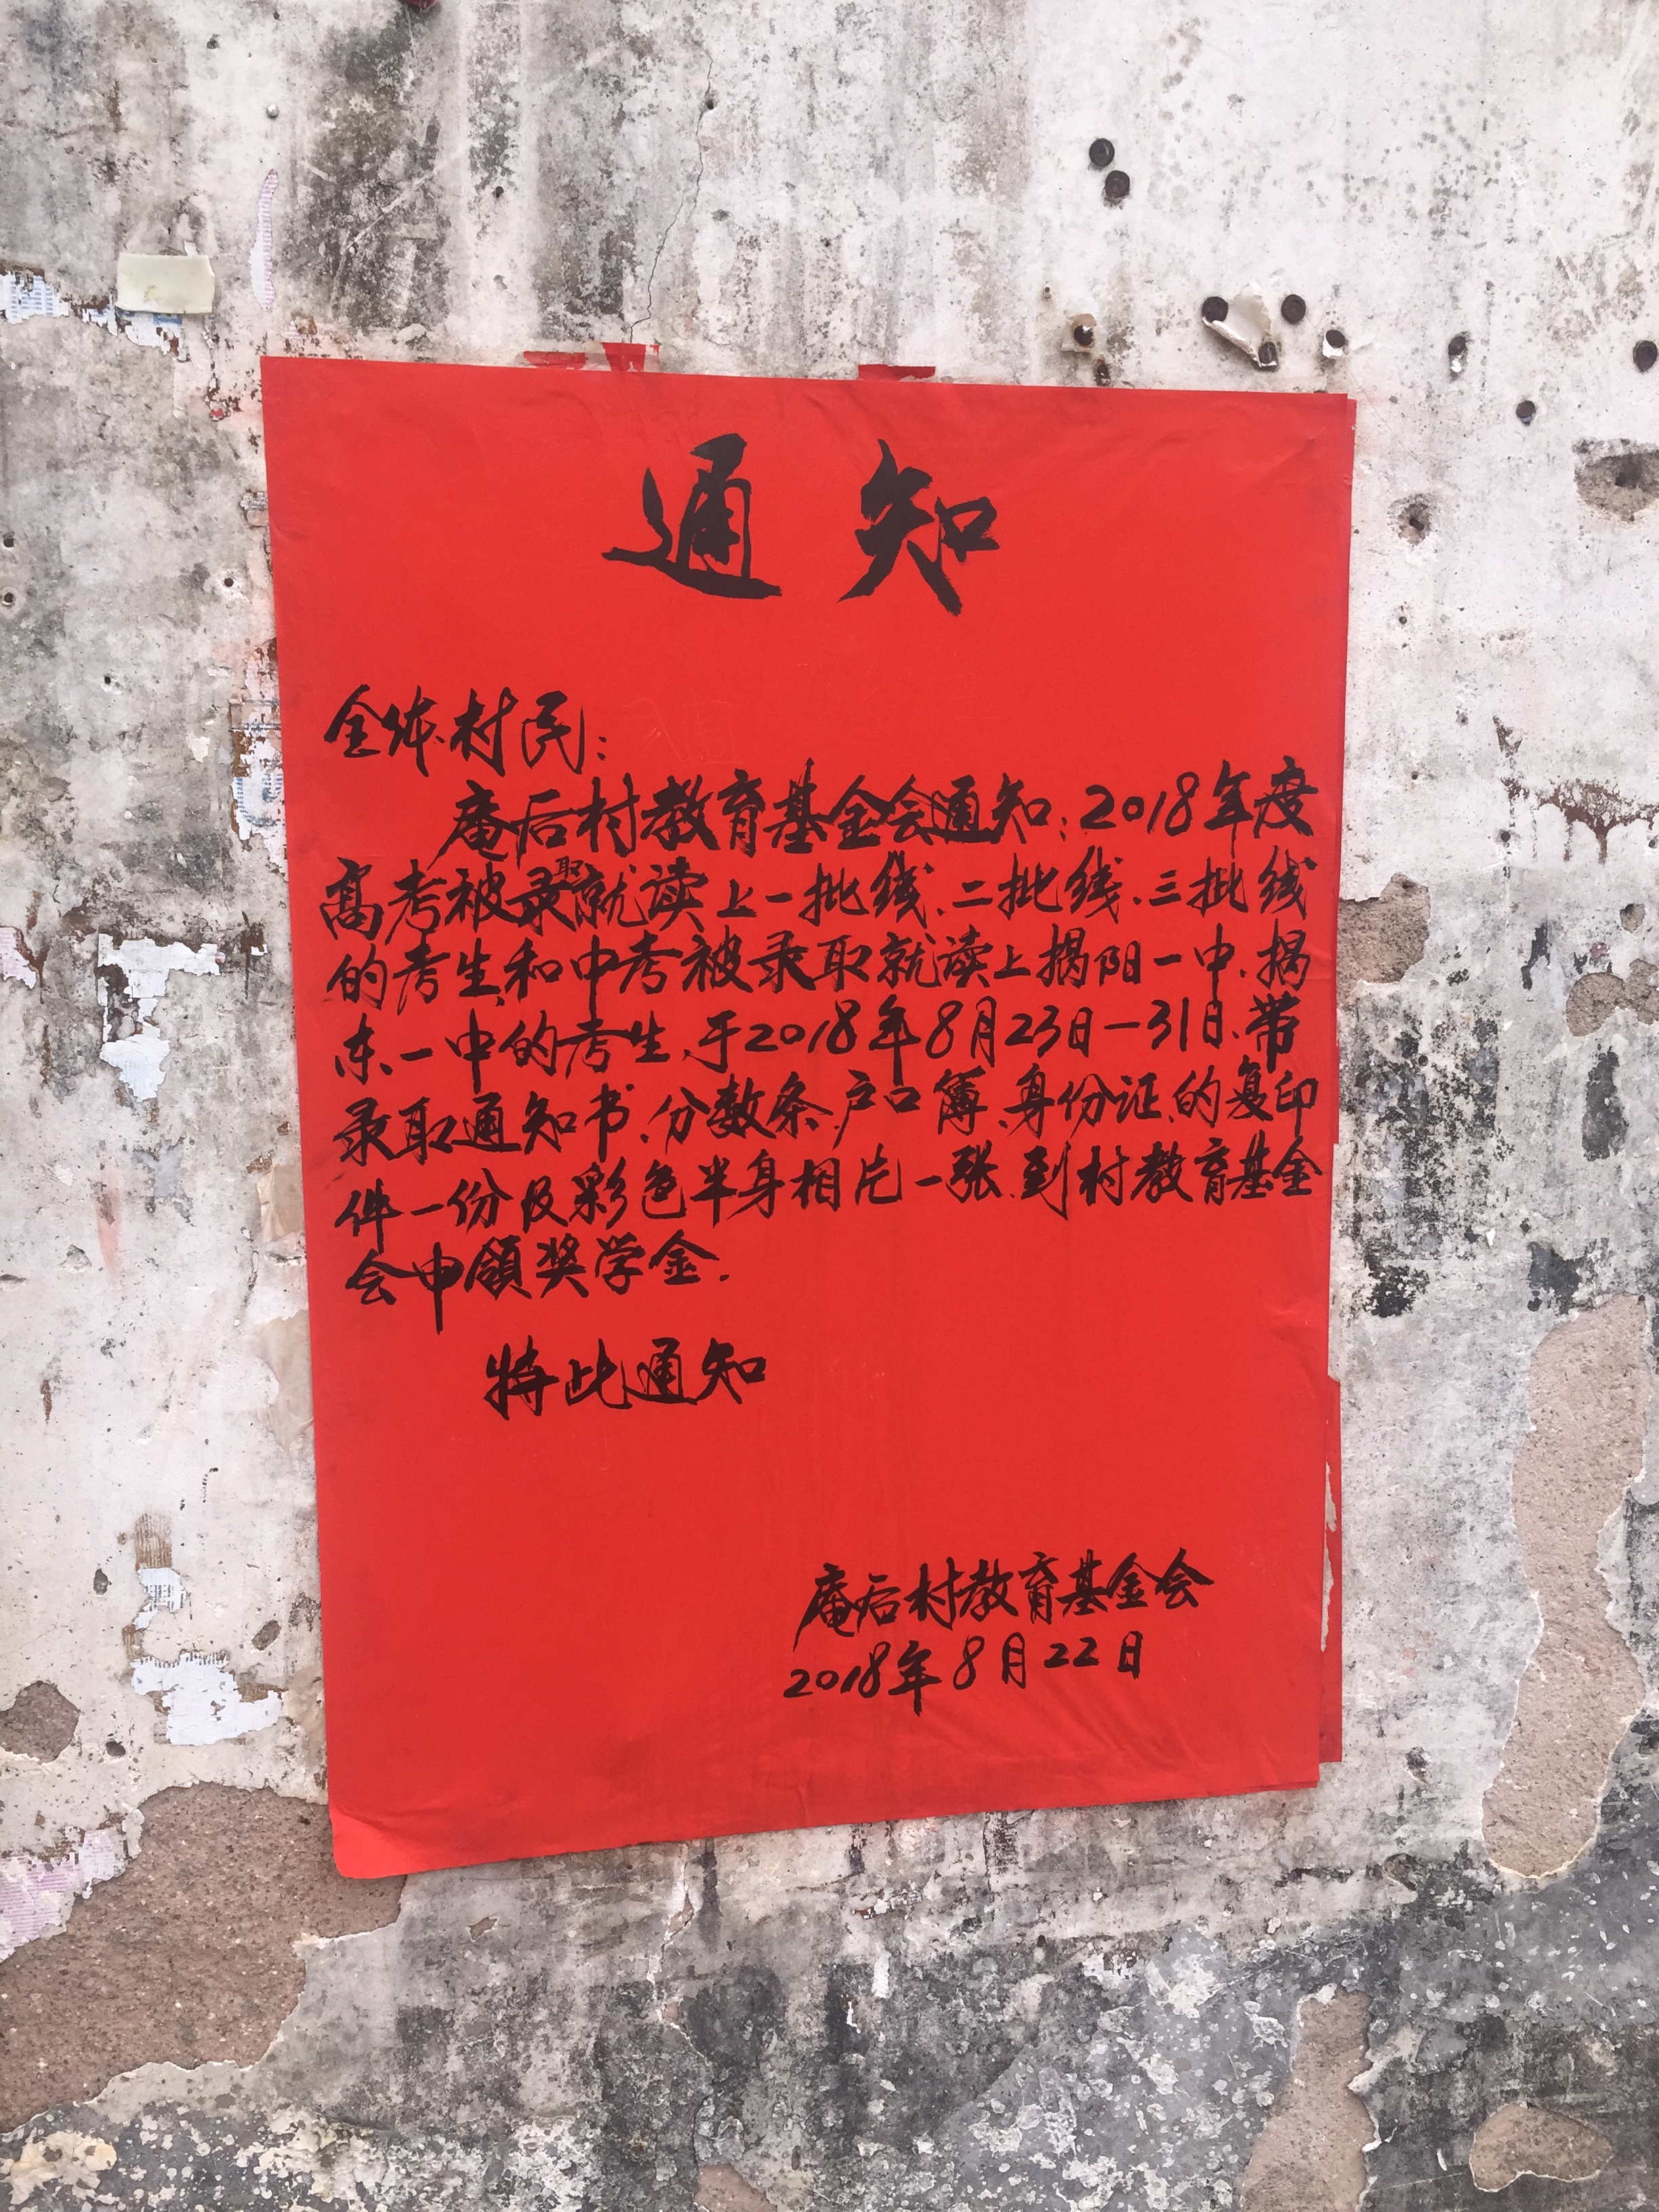 通知
全体村民:
庵后村教育基金会通知:2018年度
高考被录取就读上一批线、二批线、三批线
的考生和中考被录取就读上揭阳一中、揭
东一中的考生、于2018年8月23日—31日、带
录取通知书、分数条、户口簿、身份证、的复印
件一份及彩色半身相片一张、到村教育基金
会申领奖学金.
特此通知
庵后村教育基金会
2018年8月22日